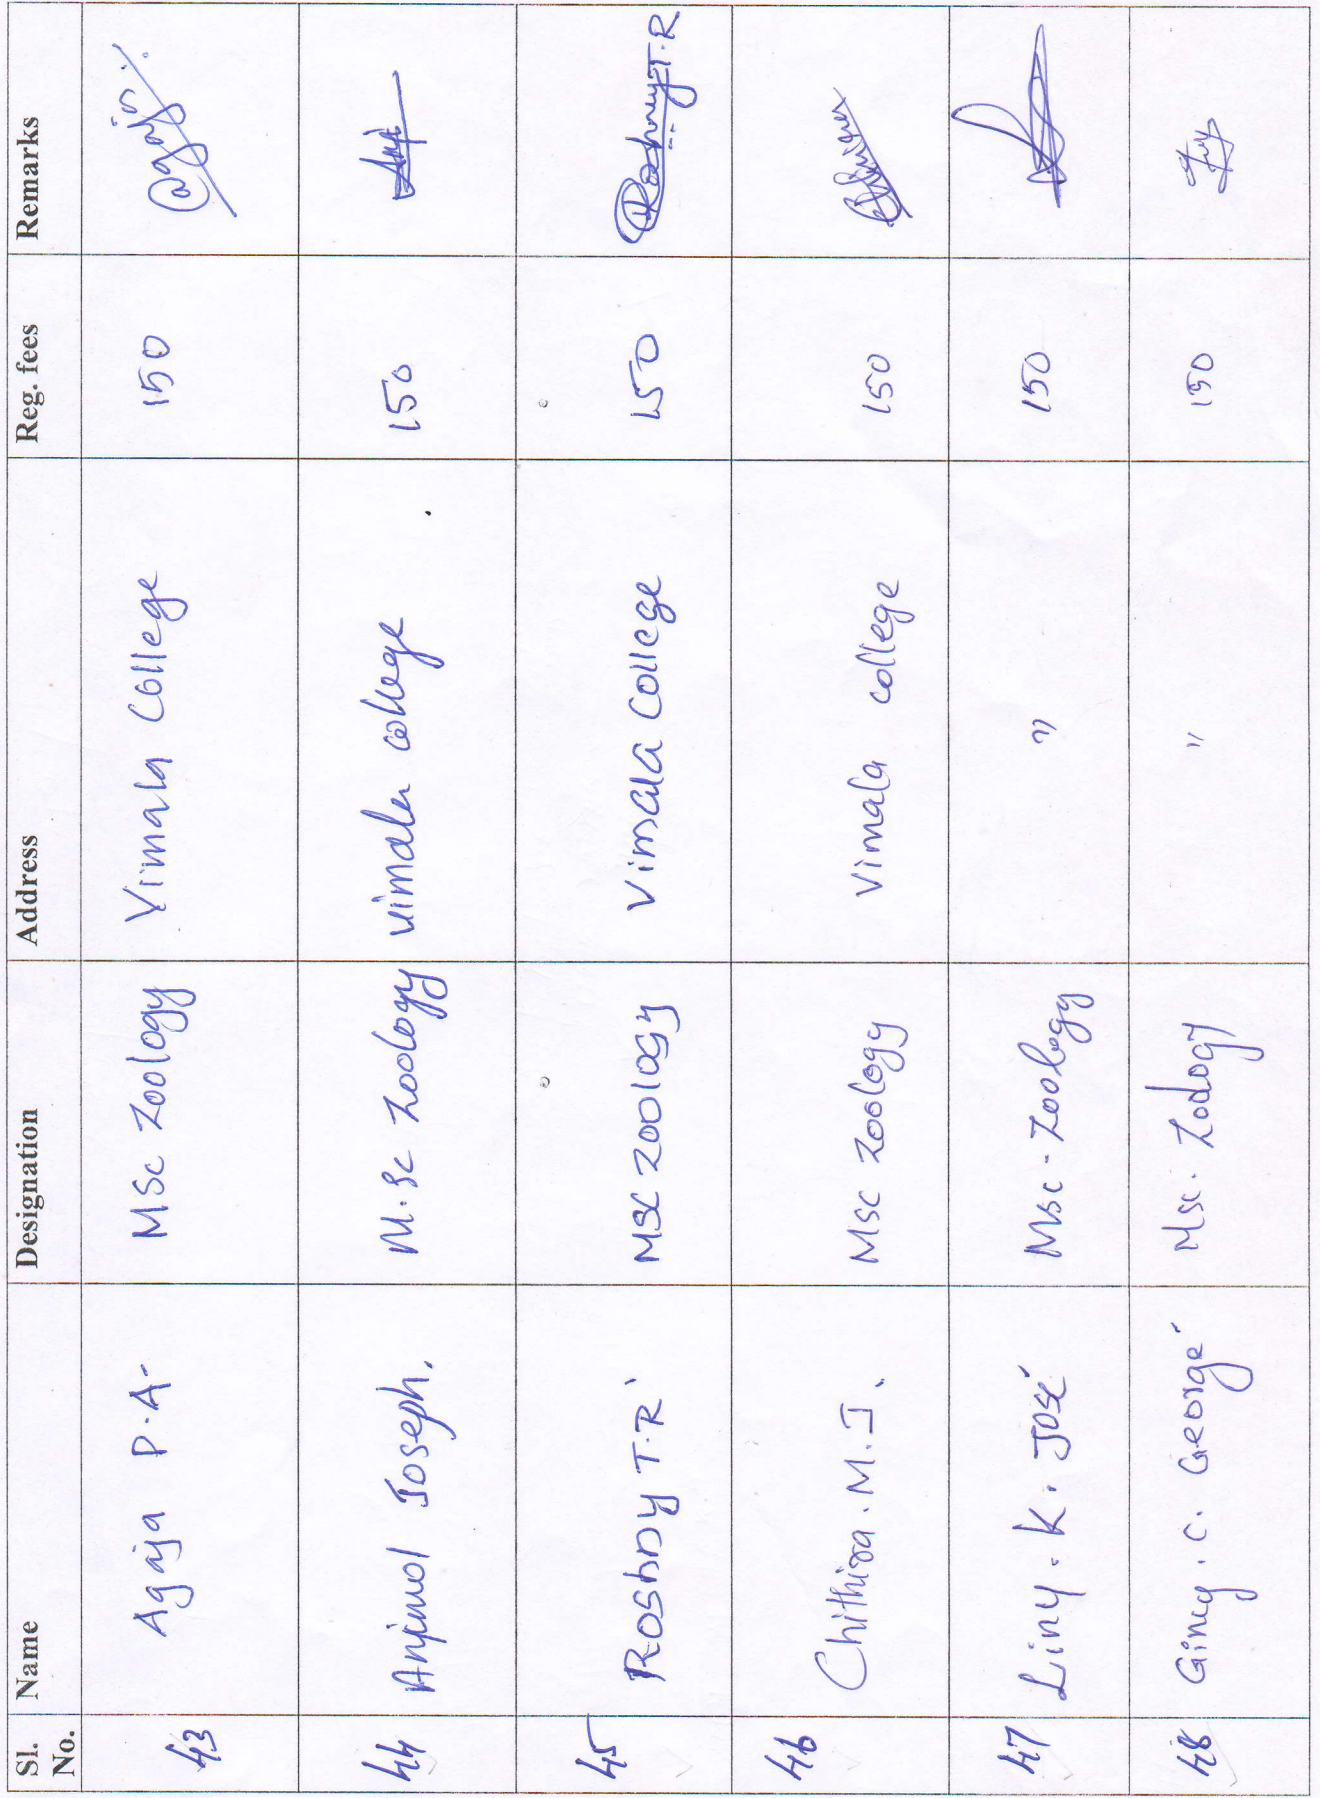 Sl. No. Name Designation Address Reg. fees Remarks
43 Agaja P.A. MSc Zoology Vimala College 150 Agaja
44 Anjimol Joseph. M.Sc Zoology vimala college 150 Anji
45 Roshny T.R MSC Zoology Vimala College 150 Roshny T.R
46 Chithira.M.J. Msc Zoology Vimala college 150
47 Liny.K.Jose Msc-Zoology " 150
48 Gimy.C.George Msc. Zoology " 150